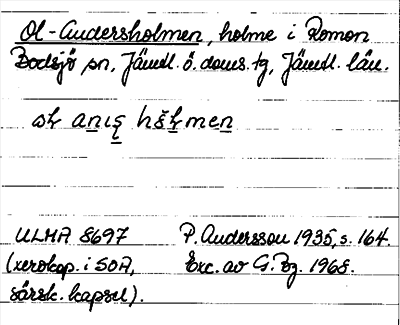 Ol-Andersholmen, holme i Romon
Bodsjö sn, Jämtl. ö. doms. tg, Jämtl. län.
ULMA 8697 P. Andersson 1935, s. 164.
(xerokop. i SOA, Exc. av G. Bg. 1968.
särsk. kapsel).